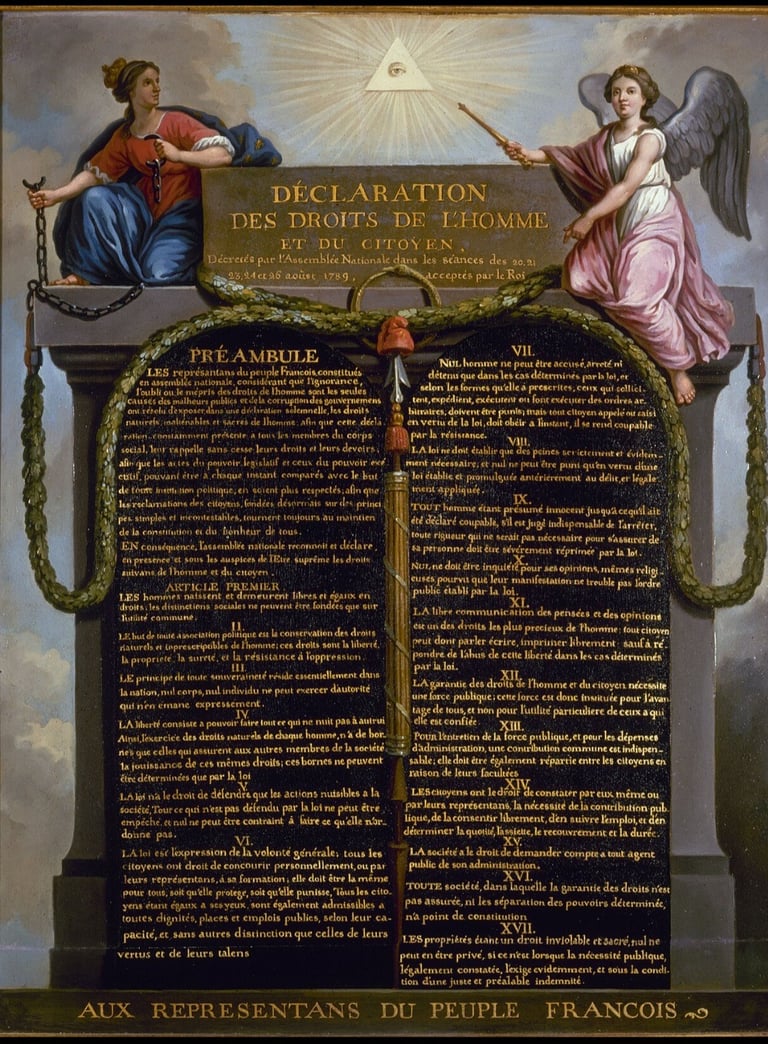 DÉCLARATION
DES DROITS DE L'HOMME
ET DU CITOYEN,
Décretés par l'Assemblée Nationale dans les séances des 20, 21
23, 24 et 26 aoûst 1789, acceptés par le Roi
PRÉAMBULE
LES représantans du peuple Francois, constitués
en assemblée nationale, considérant que l'ignorance,
l'oubli ou le mépris des droits de l'homme sont les seules
causes des malheurs publics et de la corruption des gouvernemens
ont résolu d'exposer dans une déclaration solemnelle, les droits
naturels, inaliénables et sacrés de l'homme; afin que cette décla
ration, constamment présente a tous les membres du corps
social, leur rappelle sans cesse leurs droits et leurs devoirs;
afin que les actes du pouvoir legislatif et ceux du pouvoir exé
cutif, pouvant être à chaque instant comparés avec le but
de toute institution politique, en soient plus respectés; afin que
les reclamations des citoyens, fondées désormais sur des princi
pes simples et incontestables, tournent toujours au maintien
de la constitution et du bonheur de tous.
EN conséquence, l'assemblée nationale reconnoit et déclare,
en presence et sous les auspices de l'Etre suprême les droits
suivans de l'homme et du citoyen
ARTICLE PREMIER
LES hommes naissent et demeurent libres et égaux en
droits; les distinctions sociales ne peuvent être fondées que sur
l'utilité commune.
II.
LE but de toute association politique est la conservation des droits
naturels et inprescriptibles de l'homme; ces droits sont la liberté,
la propriété, la sureté, et la résistance à l'oppression.
III.
LE principe de toute souveraineté réside essentiellement dans
la nation, nul corps, nul individu ne peut exercer d'autorité
qui n'en émane expressement.
IV.
LA liberté consiste a pouvoir faire tout ce qui ne nuit pas à autrui
Ainsi, l'exercice des droits naturels de chaque homme, n'a de bor
nes que celles qui assurent aux autres membres de la société
la jouissance de ces mêmes droits; ces bornes ne peuvent
être déterminées que par la loi
V.
LA loi n'a le droit de défendre que les actions nuisibles à la
société. Tout ce qui n'est pas défendu par la loi ne peut être
empêché, et nul ne peut être contraint à faire ce qu'elle n'or-
donne pas.
VI.
LA loi est l'expression de la volonté générale; tous les
citoyens ont droit de concourir personnellement, ou par
leurs représentans, à sa formation; elle doit être la même
pour tous, soit qu'elle protege, soit qu'elle punisse, Tous les cito-
yens étant égaux a ses yeux, sont également admissibles a
toutes dignités, places et emplois publics, selon leur ca-
pacité, et sans autres distinction que celles de leurs
vertus et de leurs talens
VII.
NUL homme ne peut être accusé, arreté ni
détenu que dans les cas déterminés par la loi, et
selon les formes qu'elle a prescrites, ceux qui sollici-
tent, expédient, exécutent ou font exécuter des ordres ar-
bitraires, doivent être punis; mais tout citoyen appelé ou saisi
en vertu de la loi, doit obéir a l'instant, il se rend coupable
par la résistance.
VIII.
LA loi ne doit établir que des peines strictement et évidem-
ment nécessaire, et nul ne peut être puni qu'en vertu d'une
loi établie et promulguée antérierement au délit, et légale-
ment appliquée.
IX.
TOUT homme étant présumé innocent jusqu'a ce qu'il ait
été déclaré coupable, s'il est jugé indispensable de l'arrêter,
toute rigueur qui ne serait pas nécessaire pour s'assurer de
sa personne doit être sévèrement réprimée par la loi.
X.
NUL ne doit être inquiété pour ses opinions, mêmes religi
euses pourvu que leur manifestation ne trouble pas l'ordre
public établi par la loi.
XI.
LA libre communication des pensées et des opinions
est un des droits les plus precieux de l'homme; tout citoyen
peut donc parler écrire, imprimer librement; sauf a ré-
pondre de l'abus de cette liberté dans les cas déterminés
par la loi.
XII.
LA garantie des droits de l'homme et du citoyen nécessite
une force publique; cette force est donc instituée pour l'avan
tage de tous, et non pour l'utilité particuliere de ceux a qui
elle est confiée.
XIII.
POUR l'entretien de la force publique, et pour les dépenses
d'administration, une contribution commune est indispen-
sable; elle doit être également répartie entre les citoyens en
raison de leurs facultées
XIV.
LES citoyens ont le droit de constater par eux même ou
par leurs représentans, la nécessité de la contribution pub-
lique, de la consentir librement, d'en suivre l'emploi, et d'en
déterminer la quotité, l'assiette, le recouvrement et la durée.
XV.
LA société a le droit de demander compte a tout agent
public de son administration.
XVI.
TOUTE société, dans laquelle la garantie des droits n'est
pas assurée, ni les séparation des pouvoirs déterminée,
n'a point de constitution
XVII.
LES propriétés étant un droit inviolable et sacré, nul ne
peut en être privé, si ce n'est lorsque la nécessité publique,
légalement constatée, l'exige evidemment, et sous la condi-
tion d'une juste et préalable indemnité.
AUX REPRESENTANS DU PEUPLE FRANCOIS